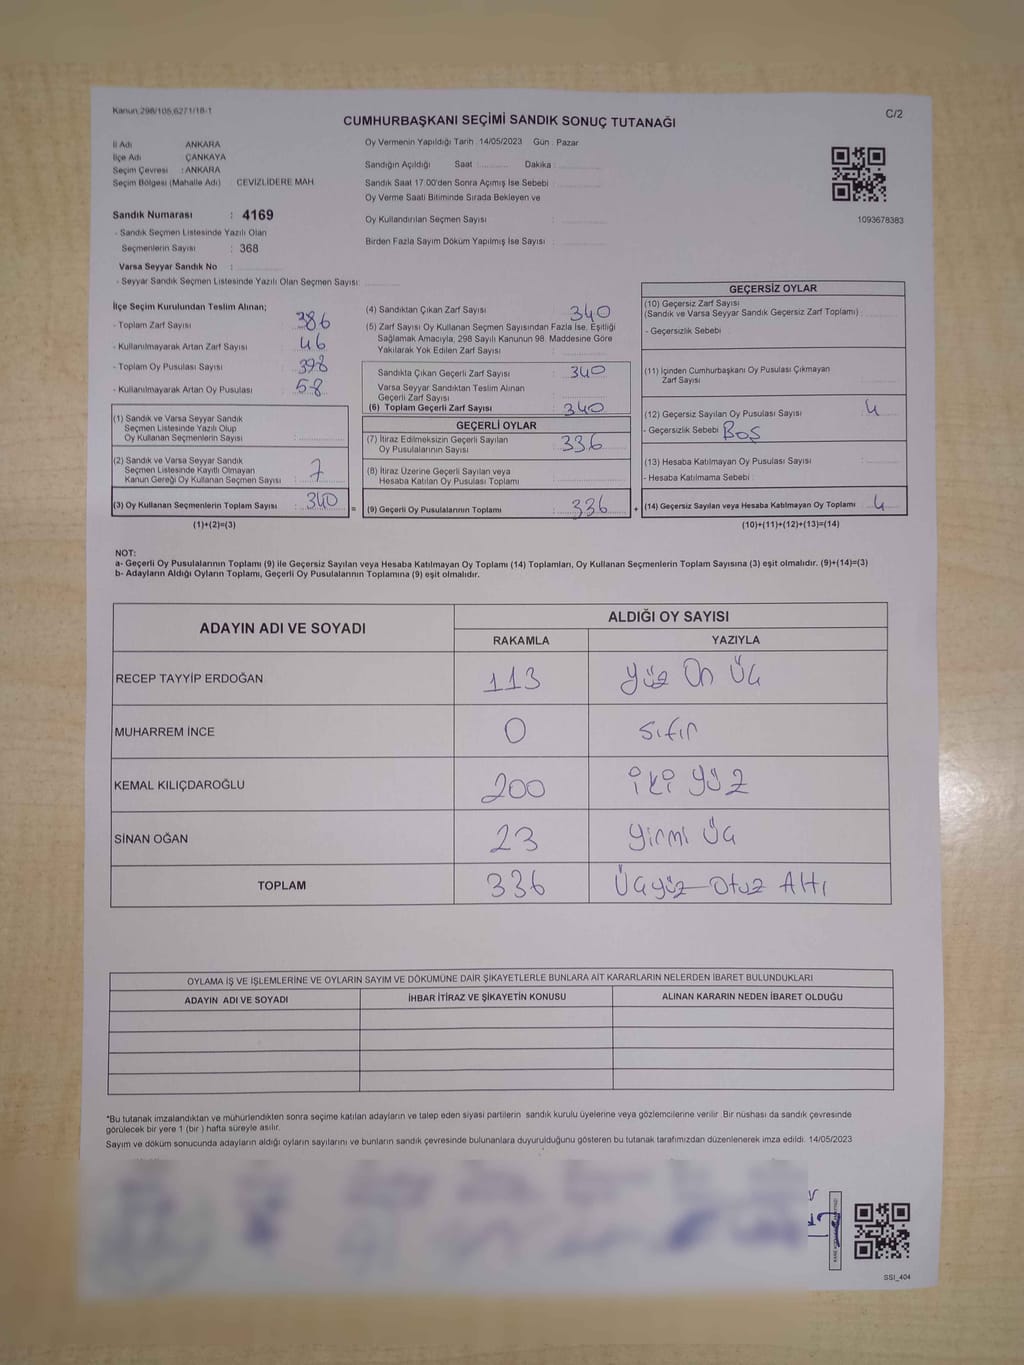 Kanun:298/105,6271/18-1
C/2
CUMHURBAŞKANI SEÇİMİ SANDIK SONUÇ TUTANAĞI
İl Adı ANKARA
İlçe Adı ÇANKAYA
Seçim Çevresi : ANKARA
Seçim Bölgesi (Mahalle Adı) : CEVİZLİDERE MAH.
Oy Vermenin Yapıldığı Tarih :14/05/2023 Gün : Pazar
Sandığın Açıldığı Saat : Dakika :
Sandık Saat 17:00'den Sonra Açımış İse Sebebi :
Oy Verme Saati Bitiminde Sırada Bekleyen ve
Oy Kullandırılan Seçmen Sayısı :
Birden Fazla Sayım Döküm Yapılmış İse Sayısı :
1093678383
Sandık Numarası : 4169
- Sandık Seçmen Listesinde Yazılı Olan
Seçmenlerin Sayısı : 368
Varsa Seyyar Sandık No :
- Seyyar Sandık Seçmen Listesinde Yazılı Olan Seçmen Sayısı:
İlçe Seçim Kurulundan Teslim Alınan;
- Toplam Zarf Sayısı : 386
- Kullanılmayarak Artan Zarf Sayısı : 46
- Toplam Oy Pusulası Sayısı : 398
- Kullanılmayarak Artan Oy Pusulası : 58
(1) Sandık ve Varsa Seyyar Sandık
Seçmen Listesinde Yazılı Olup
Oy Kullanan Seçmenlerin Sayısı :
(2) Sandık ve Varsa Seyyar Sandık
Seçmen Listesinde Kayıtlı Olmayan
Kanun Gereği Oy Kullanan Seçmen Sayısı : 7
(3) Oy Kullanan Seçmenlerin Toplam Sayısı : 340
(1)+(2)=(3)
(4) Sandıktan Çıkan Zarf Sayısı : 340
(5) Zarf Sayısı Oy Kullanan Seçmen Sayısından Fazla İse, Eşitliği
Sağlamak Amacıyla, 298 Sayılı Kanunun 98. Maddesine Göre
Yakılarak Yok Edilen Zarf Sayısı :
Sandıkta Çıkan Geçerli Zarf Sayısı : 340
Varsa Seyyar Sandıktan Teslim Alınan
Geçerli Zarf Sayısı :
(6) Toplam Geçerli Zarf Sayısı : 340
GEÇERLİ OYLAR
(7) İtiraz Edilmeksizin Geçerli Sayılan
Oy Pusulalarının Sayısı : 336
(8) İtiraz Üzerine Geçerli Sayılan veya
Hesaba Katılan Oy Pusulası Toplamı :
= (9) Geçerli Oy Pusulalarının Toplamı : 336
GEÇERSİZ OYLAR
(10) Geçersiz Zarf Sayısı
(Sandık ve Varsa Seyyar Sandık Geçersiz Zarf Toplamı) :
- Geçersizlik Sebebi :
(11) İçinden Cumhurbaşkanı Oy Pusulası Çıkmayan
Zarf Sayısı :
(12) Geçersiz Sayılan Oy Pusulası Sayısı : 4
- Geçersizlik Sebebi : Boş
(13) Hesaba Katılmayan Oy Pusulası Sayısı :
- Hesaba Katılmama Sebebi :
+ (14) Geçersiz Sayılan veya Hesaba Katılmayan Oy Toplamı : 4
(10)+(11)+(12)+(13)=(14)
NOT:
a- Geçerli Oy Pusulalarının Toplamı (9) ile Geçersiz Sayılan veya Hesaba Katılmayan Oy Toplamı (14) Toplamları, Oy Kullanan Seçmenlerin Toplam Sayısına (3) eşit olmalıdır. (9)+(14)=(3)
b- Adayların Aldığı Oyların Toplamı, Geçerli Oy Pusulalarının Toplamına (9) eşit olmalıdır.
ADAYIN ADI VE SOYADI ALDIĞI OY SAYISI
RAKAMLA YAZIYLA
RECEP TAYYİP ERDOĞAN 113 Yüz On Üç
MUHARREM İNCE 0 Sıfır
KEMAL KILIÇDAROĞLU 200 iki yüz
SİNAN OĞAN 23 Yirmi Üç
TOPLAM 336 Üçyüz Otuz Altı
OYLAMA İŞ VE İŞLEMLERİNE VE OYLARIN SAYIM VE DÖKÜMÜNE DAİR ŞİKAYETLERLE BUNLARA AİT KARARLARIN NELERDEN İBARET BULUNDUKLARI
ADAYIN ADI VE SOYADI İHBAR İTİRAZ VE ŞİKAYETİN KONUSU ALINAN KARARIN NEDEN İBARET OLDUĞU
*Bu tutanak imzalandıktan ve mühürlendikten sonra seçime katılan adayların ve talep eden siyasi partilerin sandık kurulu üyelerine veya gözlemcilerine verilir. Bir nüshası da sandık çevresinde
görülecek bir yere 1 (bir ) hafta süreyle asılır.
Sayım ve döküm sonucunda adayların aldığı oyların sayılarını ve bunların sandık çevresinde bulunanlara duyurulduğunu gösteren bu tutanak tarafımızdan düzenlenerek imza edildi. 14/05/2023
SSI_404